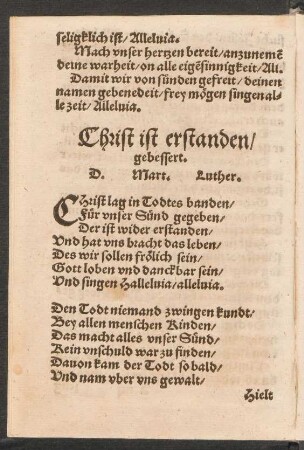 seligklich ist/ Alleluia.
Mach vnser hertzen bereit/ anzunemẽ
deine warheit/ on alle eigẽsinnigkeit/ All.
Damit wir von sünden gefreit/ deinen
namen gebenedeit/ frey mögen singen al-
le zeit/ Alleluia.
Christ ist erstanden/
gebessert.
D. Mart. Luther.
CHrist lag in Todtes banden/
Für vnser Sünd gegeben/
Der ist wider erstanden/
Vnd hat vns bracht das leben/
Des wir sollen frölich sein/
Gott loben vnd danckbar sein/
Vnd singen Halleluia/ alleluia.
Den Todt niemand zwingen kundt/
Bey allen menschen Kinden/
Das macht alles vnser Sünd/
Kein vnschuld war zu finden/
Dauon kam der Todt so bald/
Vnd nam vber vns gewalt/
Hielt